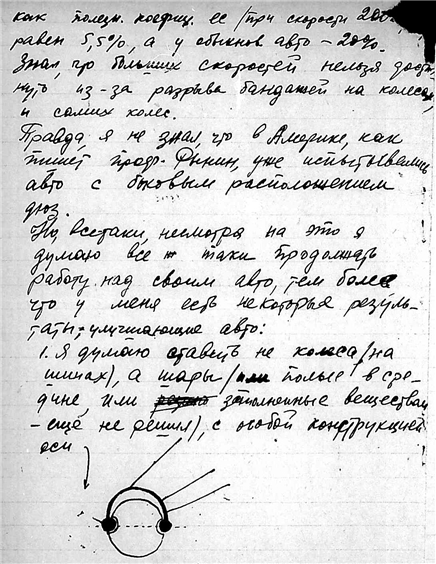 как полезн. коефиц. ее (при скорости 200
равен 5,5%, а у обыкнов авто – 20%.
Знал, что больших скоростей нельзя дости
нуть из-за разрыва бандажей на колесах,
и самих колес.
Правда, я не знал, что в Америке, как
пишет проф. Рынин, уже испытывались
авто с боковым расположением
дюз.
Но, всетаки, несмотря на это я
думаю все – таки продолжать
работу над своим авто, тем более
что у меня есть некоторые резуль-
таты, улучшающие авто:
1. Я думаю ставить не колеса (на
шинах), а шары (или полые в сре-
дине, или заполненные веществам
– ещё не решил), с особой конструкцией
оси